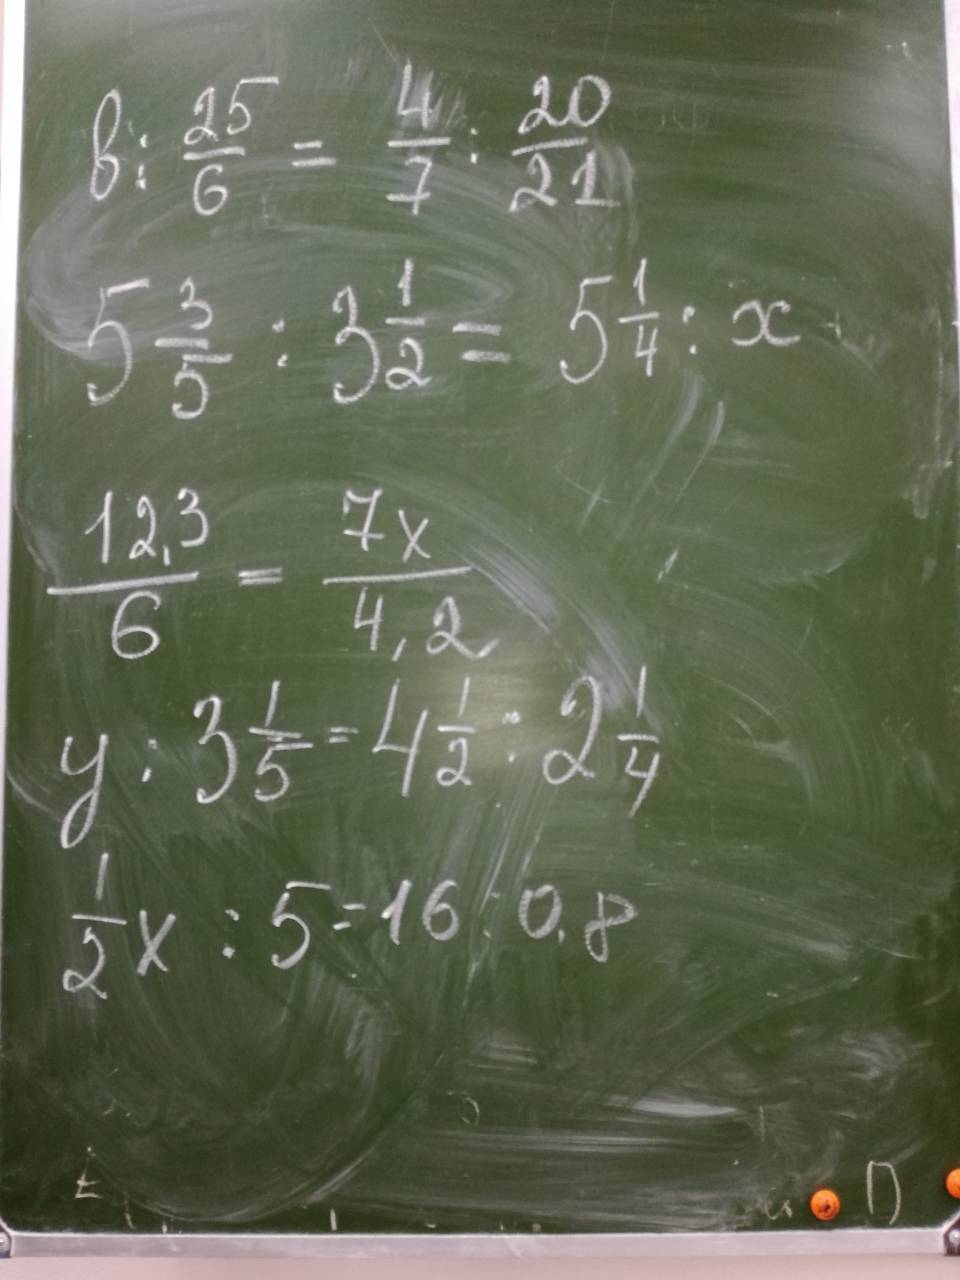 в : 25/6 = 4/7 : 20/21
5 3/5 : 3 1/2 = 5 1/4 : x
12,3/6 = 7x/4,2
y : 3 1/5 = 4 1/2 : 2 1/4
1/2 x : 5 = 16 : 0,8